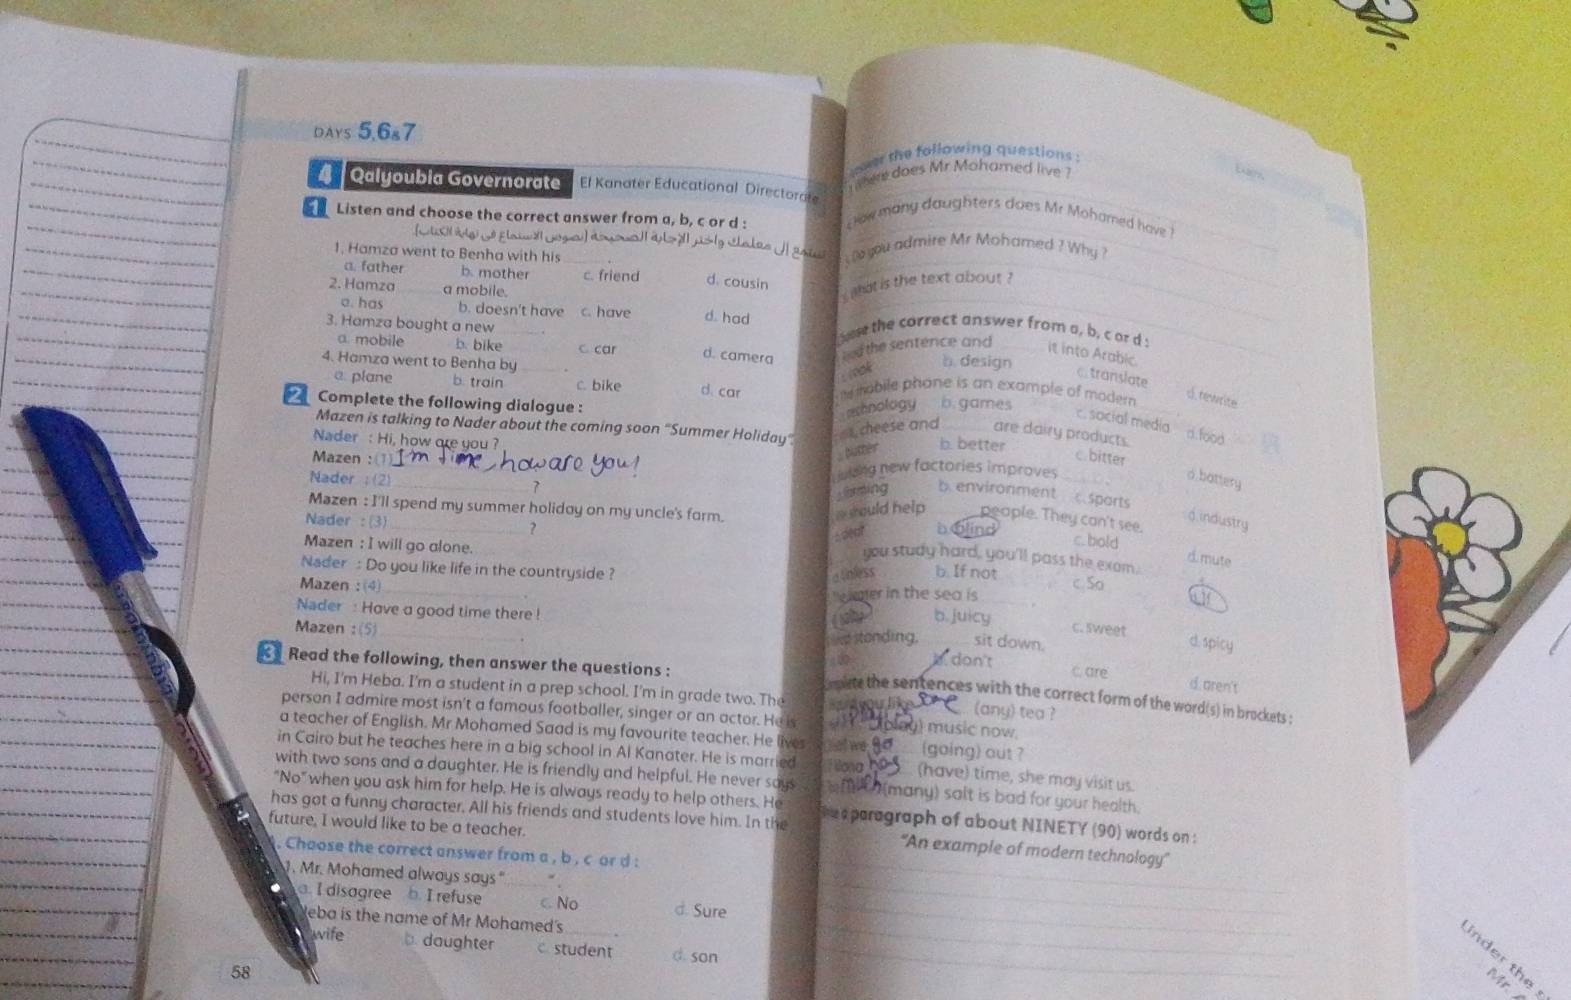 DAYS 5,6&7
4 Qalyoubia Governorate El Kanater Educational Directorate
1 Listen and choose the correct answer from a, b, c or d :
استمع إلى معلمك واختر الإجابة الصحيحة (نصوص الاستماع في نهاية الكتاب)
1. Hamza went to Benha with his ______ .
a. father b. mother c. friend d. cousin
2. Hamza ______ a mobile.
a. has b. doesn't have c. have d. had
3. Hamza bought a new ______ .
a. mobile b. bike c. car d. camera
4. Hamza went to Benha by ______ .
a. plane b. train c. bike d. car
2 Complete the following dialogue :
Mazen is talking to Nader about the coming soon "Summer Holiday"
Nader : Hi, how are you ?
Mazen : (1) I'm fime, how are you!
Nader : (2) ______ ?
Mazen : I'll spend my summer holiday on my uncle's farm.
Nader : (3) ______ ?
Mazen : I will go alone.
Nader : Do you like life in the countryside ?
Mazen : (4) ______ .
Nader : Have a good time there !
Mazen : (5) ______ .
3 Read the following, then answer the questions :
Hi, I'm Heba. I'm a student in a prep school. I'm in grade two. The
person I admire most isn't a famous footballer, singer or an actor. He is
a teacher of English. Mr Mohamed Saad is my favourite teacher. He lives
in Cairo but he teaches here in a big school in Al Kanater. He is married
with two sons and a daughter. He is friendly and helpful. He never says
"No" when you ask him for help. He is always ready to help others. He
has got a funny character. All his friends and students love him. In the
future, I would like to be a teacher.
. Choose the correct answer from a , b , c or d :
1. Mr. Mohamed always says "______" .
a. I disagree b. I refuse c. No d. Sure
is the name of Mr Mohamed's ______ .
wife b. daughter c. student d. son
58
the following questions :
does Mr Mohamed live ?
many daughters does Mr Mohamed have ?
Do you admire Mr Mohamed ? Why ?
is the text about ?
the correct answer from a, b, c or d :
the sentence and ______ it into Arabic.
b. design c. translate d. rewrite
mobile phone is an example of modern ______ .
b. games c. social media d. food
cheese and ______ are dairy products.
b. better c. bitter d. battery
new factories improves ______ .
b. environment c. sports d. industry
should help ______ people. They can't see.
b. blind c. bold d. mute
you study hard, you'll pass the exam.
b. If not c. So d. If
in the sea is ______ .
b. juicy c. sweet d. spicy
standing, ______ sit down.
b. don't c. are d. aren't
the sentences with the correct form of the word(s) in brackets :
you like some (any) tea ?
(play) music now.
we go (going) out ?
has (have) time, she may visit us.
much (many) salt is bad for your health.
a paragraph of about NINETY (90) words on :
"An example of modern technology"
Under the
Mr.